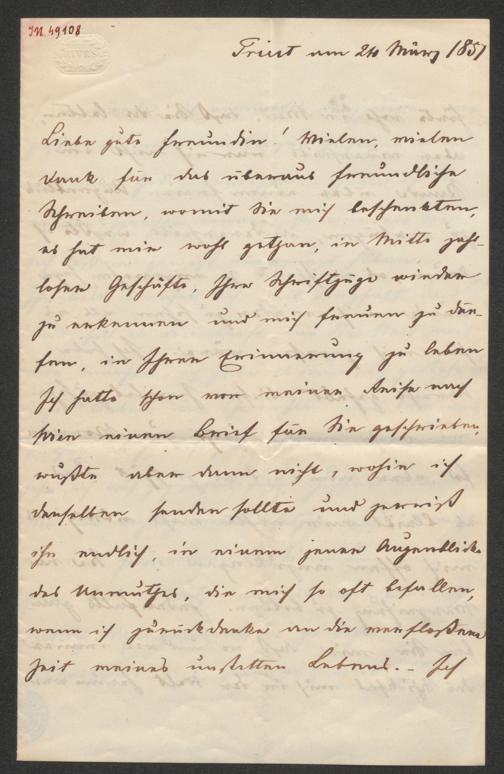 I.N. 49108
Triest am 24 März 1851
Liebe gute Freundin! Vielen, vielen
Dank für das überaus freundliche
Schreiben, womit Sie mich beschenkten,
es hat mir wohl gethan, in Mitte zahl-
loser Geschäfte, Ihre Schriftzüge wieder
zu erkennen und mich freuen zu dür-
fen, in Ihrer Erinnerung zu leben
Ich hatte schon vor meiner Reise nach
Wien einen Brief für Sie geschrieben,
wußte aber dann nicht, wohin ich
denselben senden sollte und zerriß
ihn endlich, in einem jener Augenblicke
des Unmuthes, die mich so oft befallen,
wenn ich zurückdenke an die verflossene
Zeit meines unstetten Lebens. – Ich